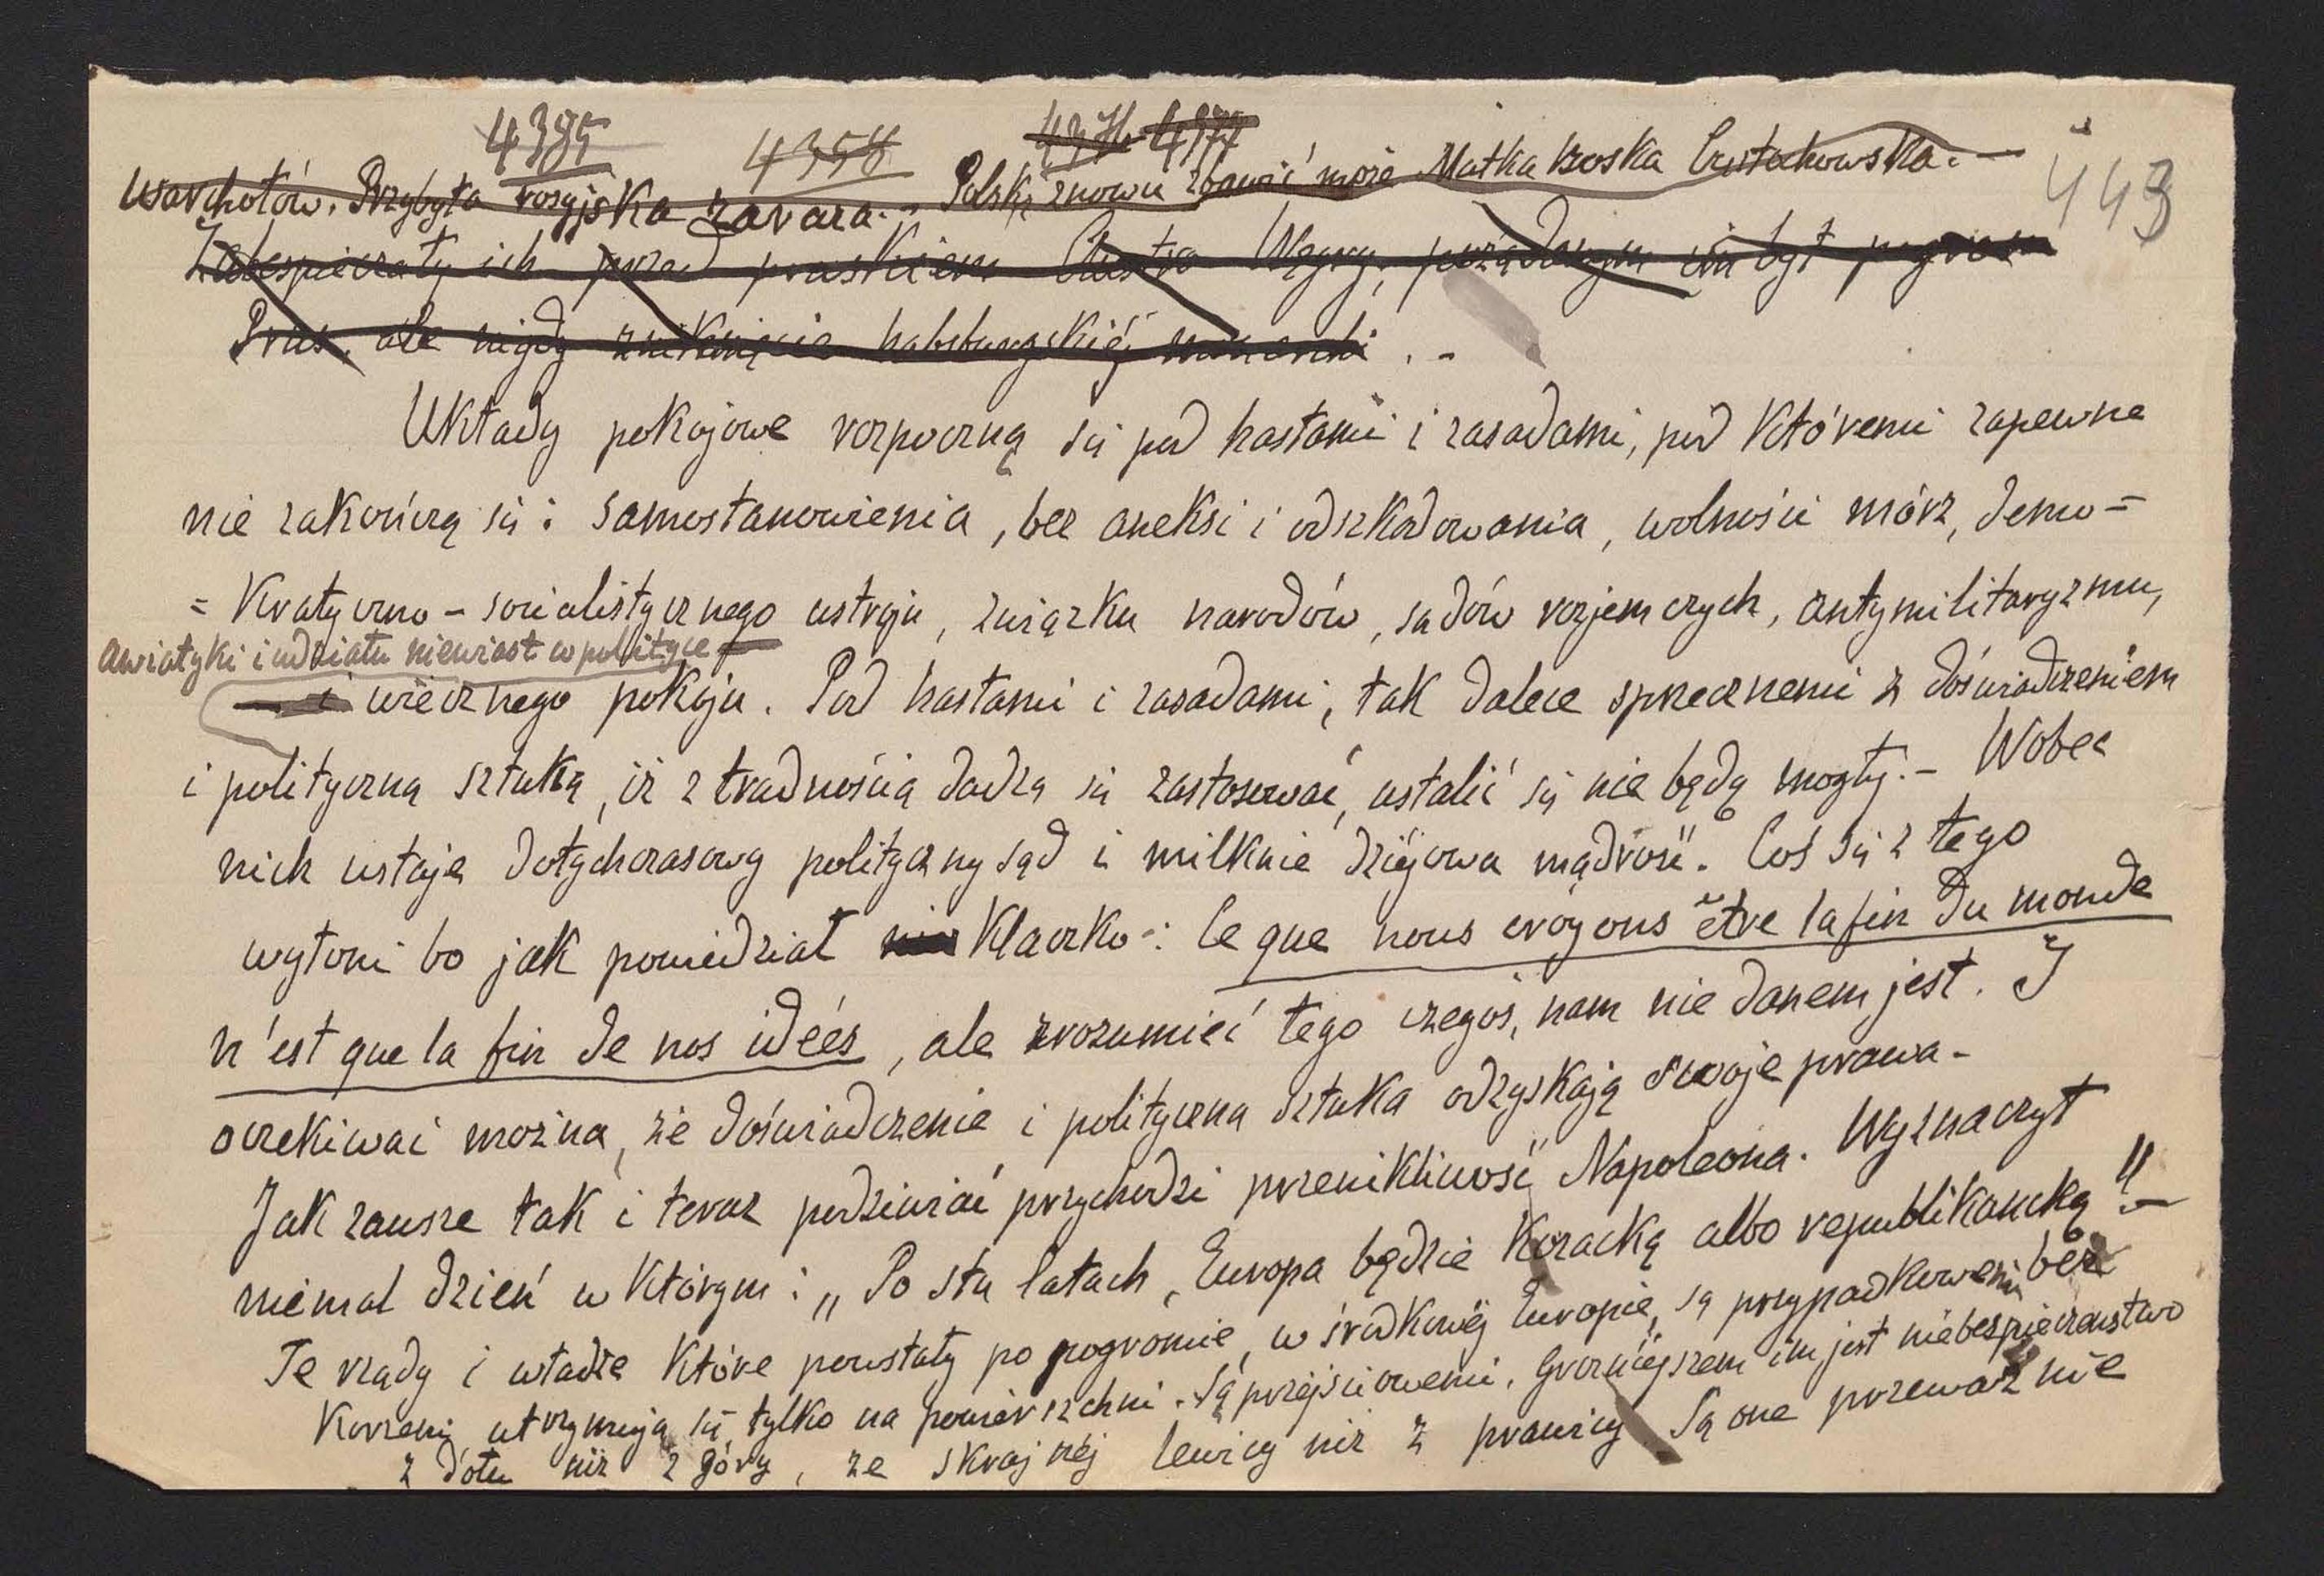 4385 4358 4376-4377
443
warchołów. Przybyła rosyjska zaraza. - Polskę znowu zbawić może Matka boska Częstochowska. -
Zabespieczały ich przed pruskiem Austro Węgry, pożądanym im był pogrom
Prus, ale nigdy zniknięcie habsburgskiéj monarchi . -
Układy pokojowe rozpoczną się pod hasłami i zasadami, pod któremi zapewne
nie zakończą się: samostanowienia, bez aneksi i odszkodowania, wolności mórz, demo=
= kratyczno - socialistycznego ustroju, związku narodów, sądów rozjemczych, antymilitaryzmu,
awiatyki i udziału niewiast w polityce
i wiecznego pokoju. Pod hasłami i zasadami, tak dalece sprzecznemi z doświadczeniem
i polityczną sztuką, iż z trudnością dadzą się zastosować, ustalić się nie będą mogły. - Wobec
nich ustaje dotychczasowy polityczny sąd i milknie dziejowa mądrość. Coś się z tego
wyłoni bo jak powiedział Klaczko: Ce que nous croyons être la fin du monde
n'est que la fin de nos idées, ale zrozumieć tego czegoś, nam nie danem jest. I
oczekiwać można, że doświadczenie i polityczna sztuka odzyskają swoje prawa -
Jak zawsze tak i teraz podziwiać przychodzi przenikliwość Napoleona. Wyznaczył
niemal dzień w którym: „Po stu latach, Europa będzie kozacką albo republikancką" -
Te rządy i władze które powstały po pogromie, w środkowéj Europie, są przypadkowemi bez
korzeni utrzymują się tylko na powierzchni. Są przejściowemi. Groźniejszem im jest niebespieczenstwo
z dołu niż z góry, ze skrajnéj lewicy niż z prawicy. Są one przeważnie